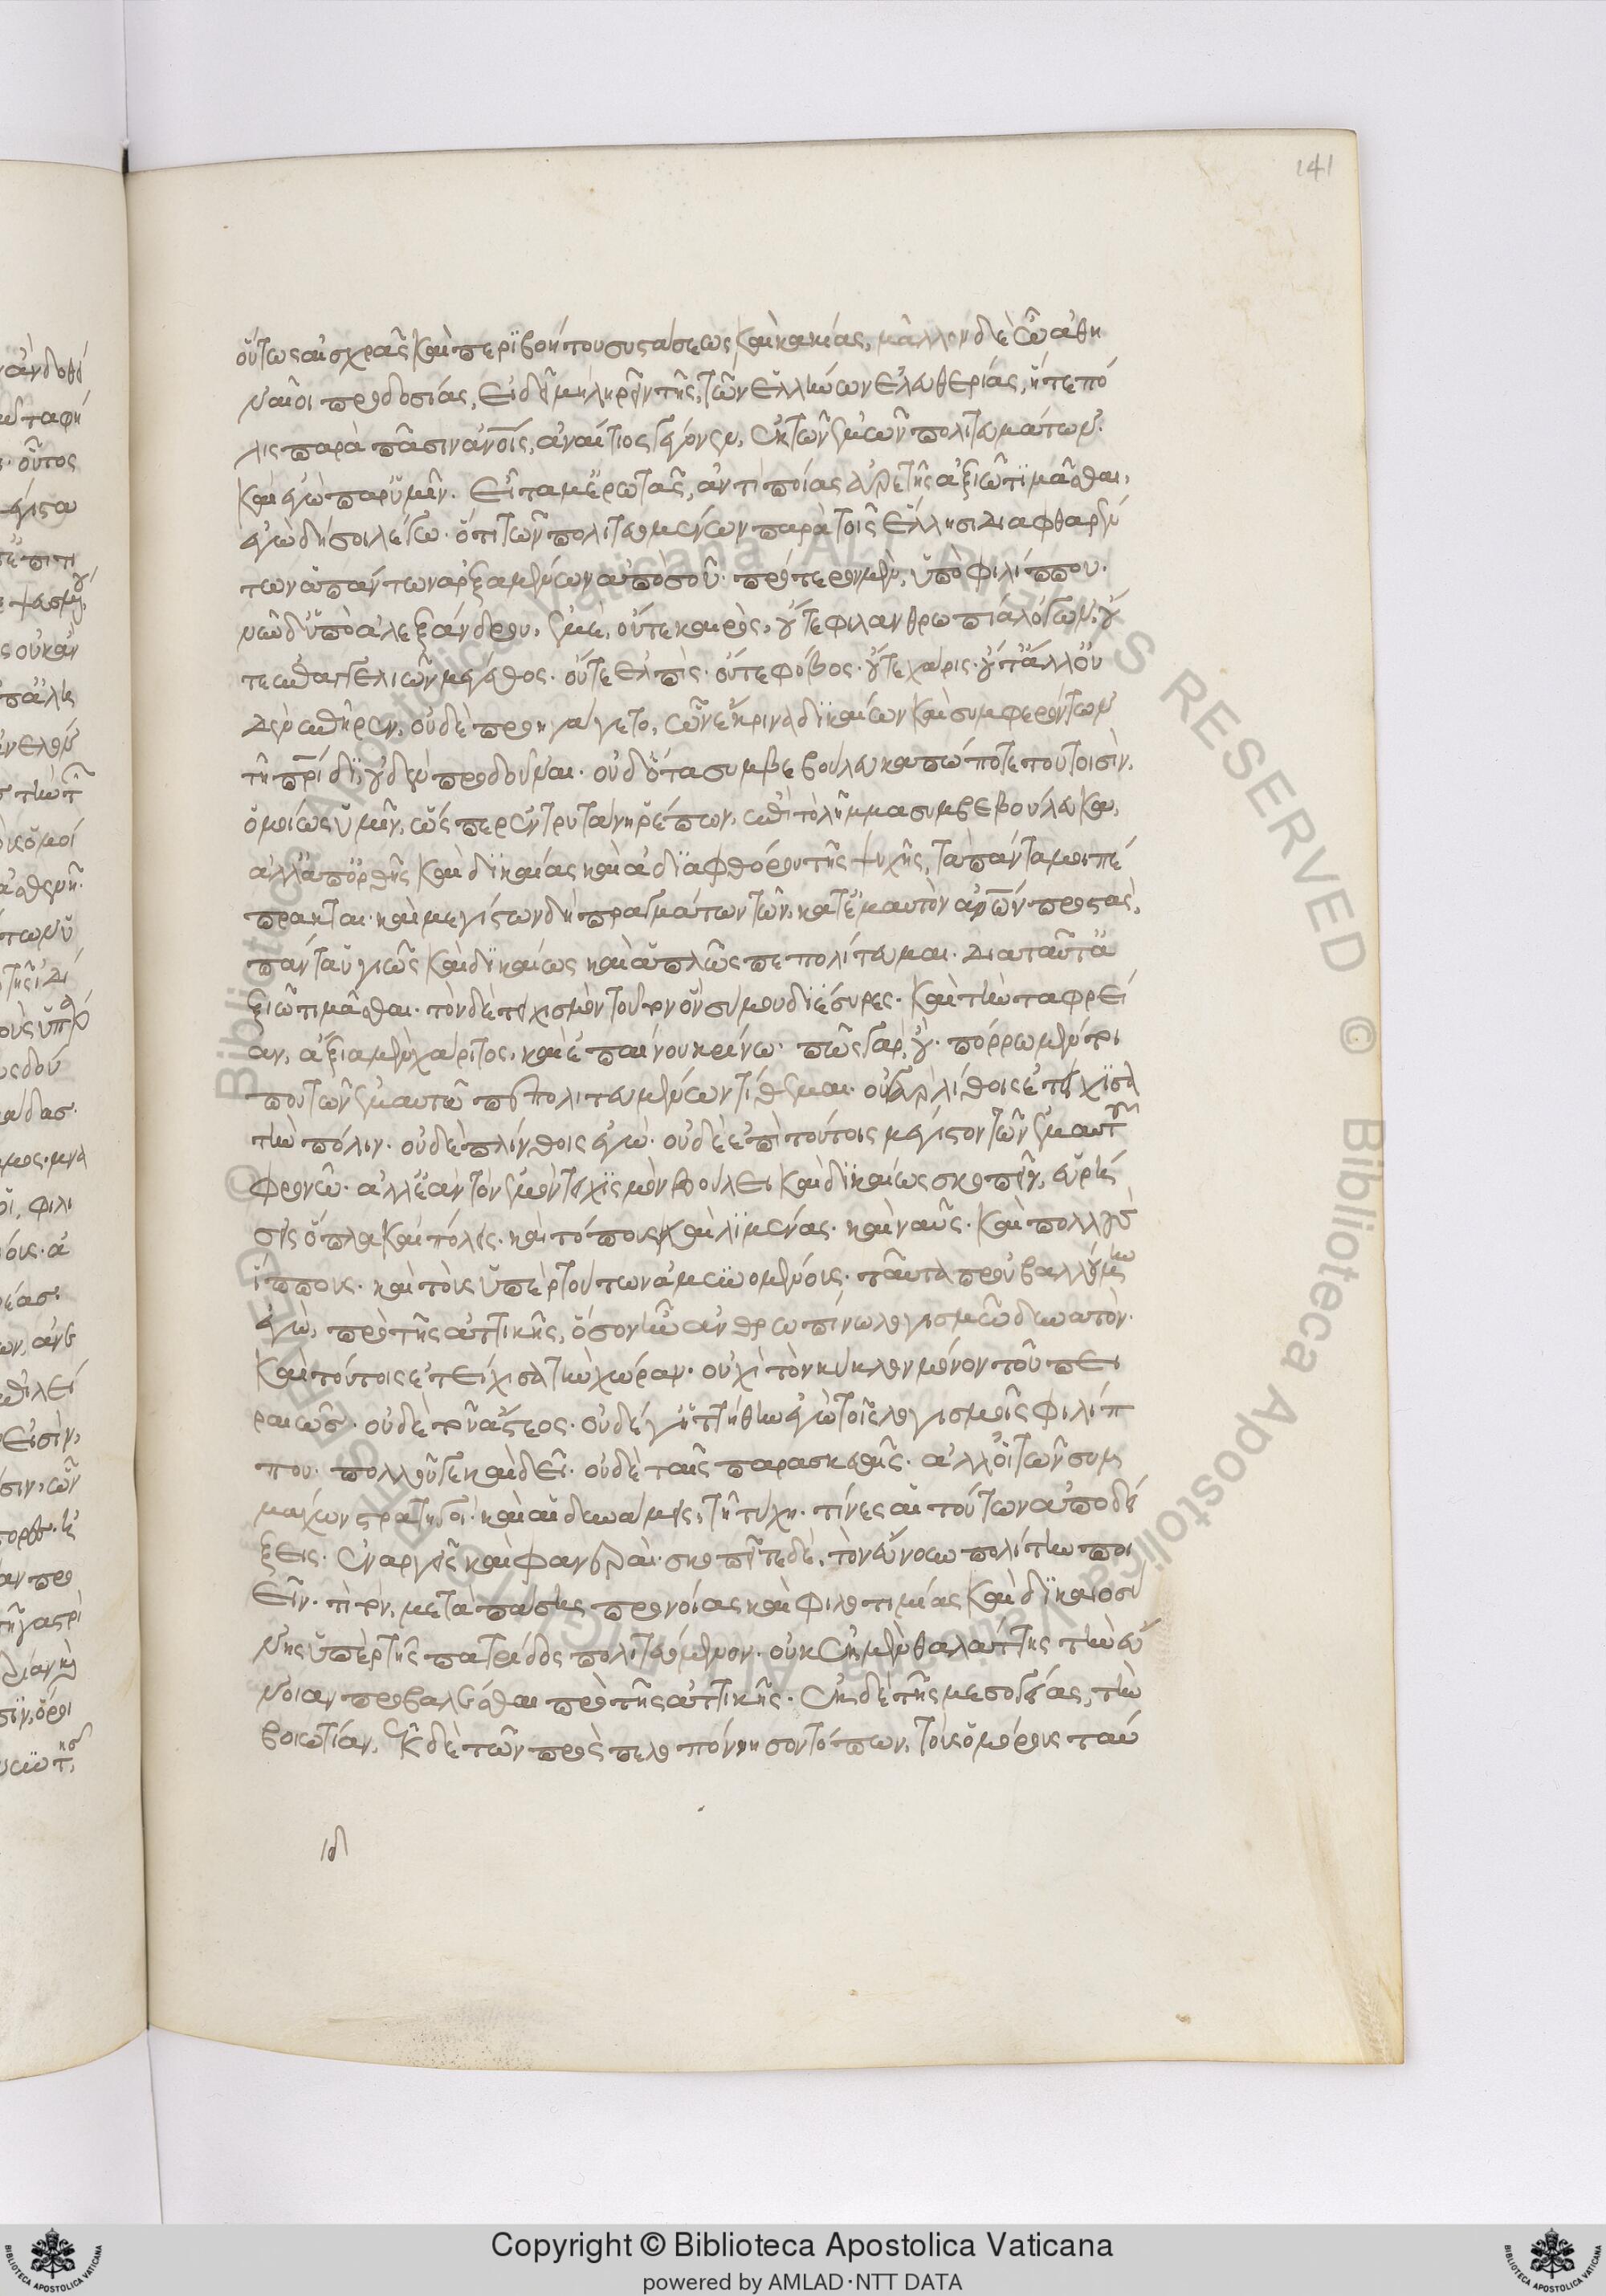 141
οὕτως αἰσχρᾶς καὶ περϊβοήτου συστάσεως καὶ κακίας, μᾶλλον δὲ ὦ ἀθη
ναῖοι προδοσίας, εἰ δεῖ μὴ ληρεῖν τῆς τῶν ἑλλήνων ἐλευθερίας, ἥ τε πό
λις παρὰ πᾶσιν ἀνοις, ἀναίτιος γέγονεν, ἐκ τῶν ἐμῶν πολιτευμάτων.
καὶ ἐγὼ παρ ὑμῖν. εἶτα μ ἐρωτᾶς, ἀντὶ ποίας ἀρετῆς ἀξιῶ τϊμᾶσθαι,
ἐγὼ δή σοι λέγω. ὅτι τῶν πολιτευομένων παρὰ τοῖς ἕλλησι διαφθαρέν
των ἁπάντων ἀρξαμένων ἀπὸ σοῦ. πρότερον μὲν, ὑπὸ φιλίππου.
νῦν δ ὑπὸ ἀλεξάνδρου, ἐμὲ, οὔτε καιρὸς, οὔτε φιλανθρωπία λόγων, οὔ
τε ἐπαγγελιῶν μέγεθος. οὔτε ἐλπὶς. οὔτε φόβος. οὔτε χάρις. οὔτ ἄλλο οὐ
δὲν ἐπῆρεν, οὐδὲ προηγάγετο, ὧν ἔκρινα δϊκαίων καὶ συμφερόντων
τῆ πρίδϊ, οὐδὲν προδοῦναι. οὐδ ὅσα συμβεβούλευκα πώποτε τουτοισὶν.
ὁμοίως ὑμῖν, ὥσπερ ἂν τρυτάνη ῥέπων, ἐπὶ τὸ λῆμμα συμβεβούλευκα,
ἀλλ ἀπ ὀρθῆς καὶ δϊκαίας καὶ ἀδϊαφθόρου τῆς ψυχῆς, τὰ πάντα μοι πέ
πρακται. καὶ μεγίστων δὴ πραγμάτων τῶν κατ ἐμαυτὸν ἀνων προστὰς,
πάντα ὑγιῶς καὶ δϊκαίως καὶ ἁπλῶς πεπολίτευμαι. διὰ ταῦτα ἀ
ξιῶ τιμᾶσθαι. τὸν δὲ τειχισμὸν τοῦτον ὃν σύ μου διέσυρες. καὶ τὴν ταφρεί
αν, ἄξια μὲν χάριτος, καὶ ἐπαίνου κρίνω. πῶς γὰρ οὔ. πόρρω μέντοι
που τῶν ἐμαυτῶ πεπολιτευμένων τίθεμαι. οὐ γὰρ λίθοις ἐτείχϊσα
τὴν πόλιν. οὐδὲ πλίνθοις ἐγὼ. οὐδὲ ἐπὶ τούτοις μέγιστον τῶν ἐμαυτοῦ
φρονῶ. ἀλλ ἐὰν τὸν ἐμὸν τειχϊσμὸν βούλει καὶ δϊκαίως σκοπεῖν, εὑρή
σεις ὅπλα καὶ πόλεις. καὶ τόπους καὶ λϊμένας. καὶ ναῦς. καὶ πολλοὺς
ἵππους. καὶ τοὺς ὑπὲρ τούτων ἀμυνομένους. ταῦτα προὐβαλλόμην
ἐγὼ, πρὸ τῆς ἀττικῆς, ὅσον ἦν ἀνθρωπίνω λογισμῶ δυνατὸν.
καὶ τούτοις ἐτείχισα τὴν χώραν. οὐχὶ τὸν κύκλον μόνον τοῦ πει
ραιῶς. οὐδὲ τοῦ ἄστεος. οὐδέ γ ἡττήθην ἐγὼ τοῖς λογισμοῖς φιλίπ
που. πολλοῦ γε καὶ δεῖ. οὐδὲ ταῖς παρασκευαῖς. ἀλλ οἱ τῶν συμ
μάχων στρατηγοὶ. καὶ αἱ δυνάμεις, τῆ τύχη. τίνες αἱ τούτων ἀποδεί
ξεις. ἐναργεῖς καὶ φανεραὶ. σκοπεῖτε δὲ, τὸν εὔνουν πολίτην ποι
εῖν. τὶ τὸν, μετὰ πάσης προνοίας καὶ φιλοτιμίας καὶ δϊκαιοσύ
νης ὑπὲρ τῆς πατρίδος πολιτευόμενον. οὐκ ἐκ μὲν θαλάττης τὴν εὔ
νοιαν προβαλέσθαι πρὸ τῆς ἀττικῆς. ἐκ δὲ τῆς μεσογείας, τὴν
βοιωτίαν. ἐκ δὲ τῶν πρὸς πελοπόννησον τόπων, τοῖς ὁμόροις ταύ